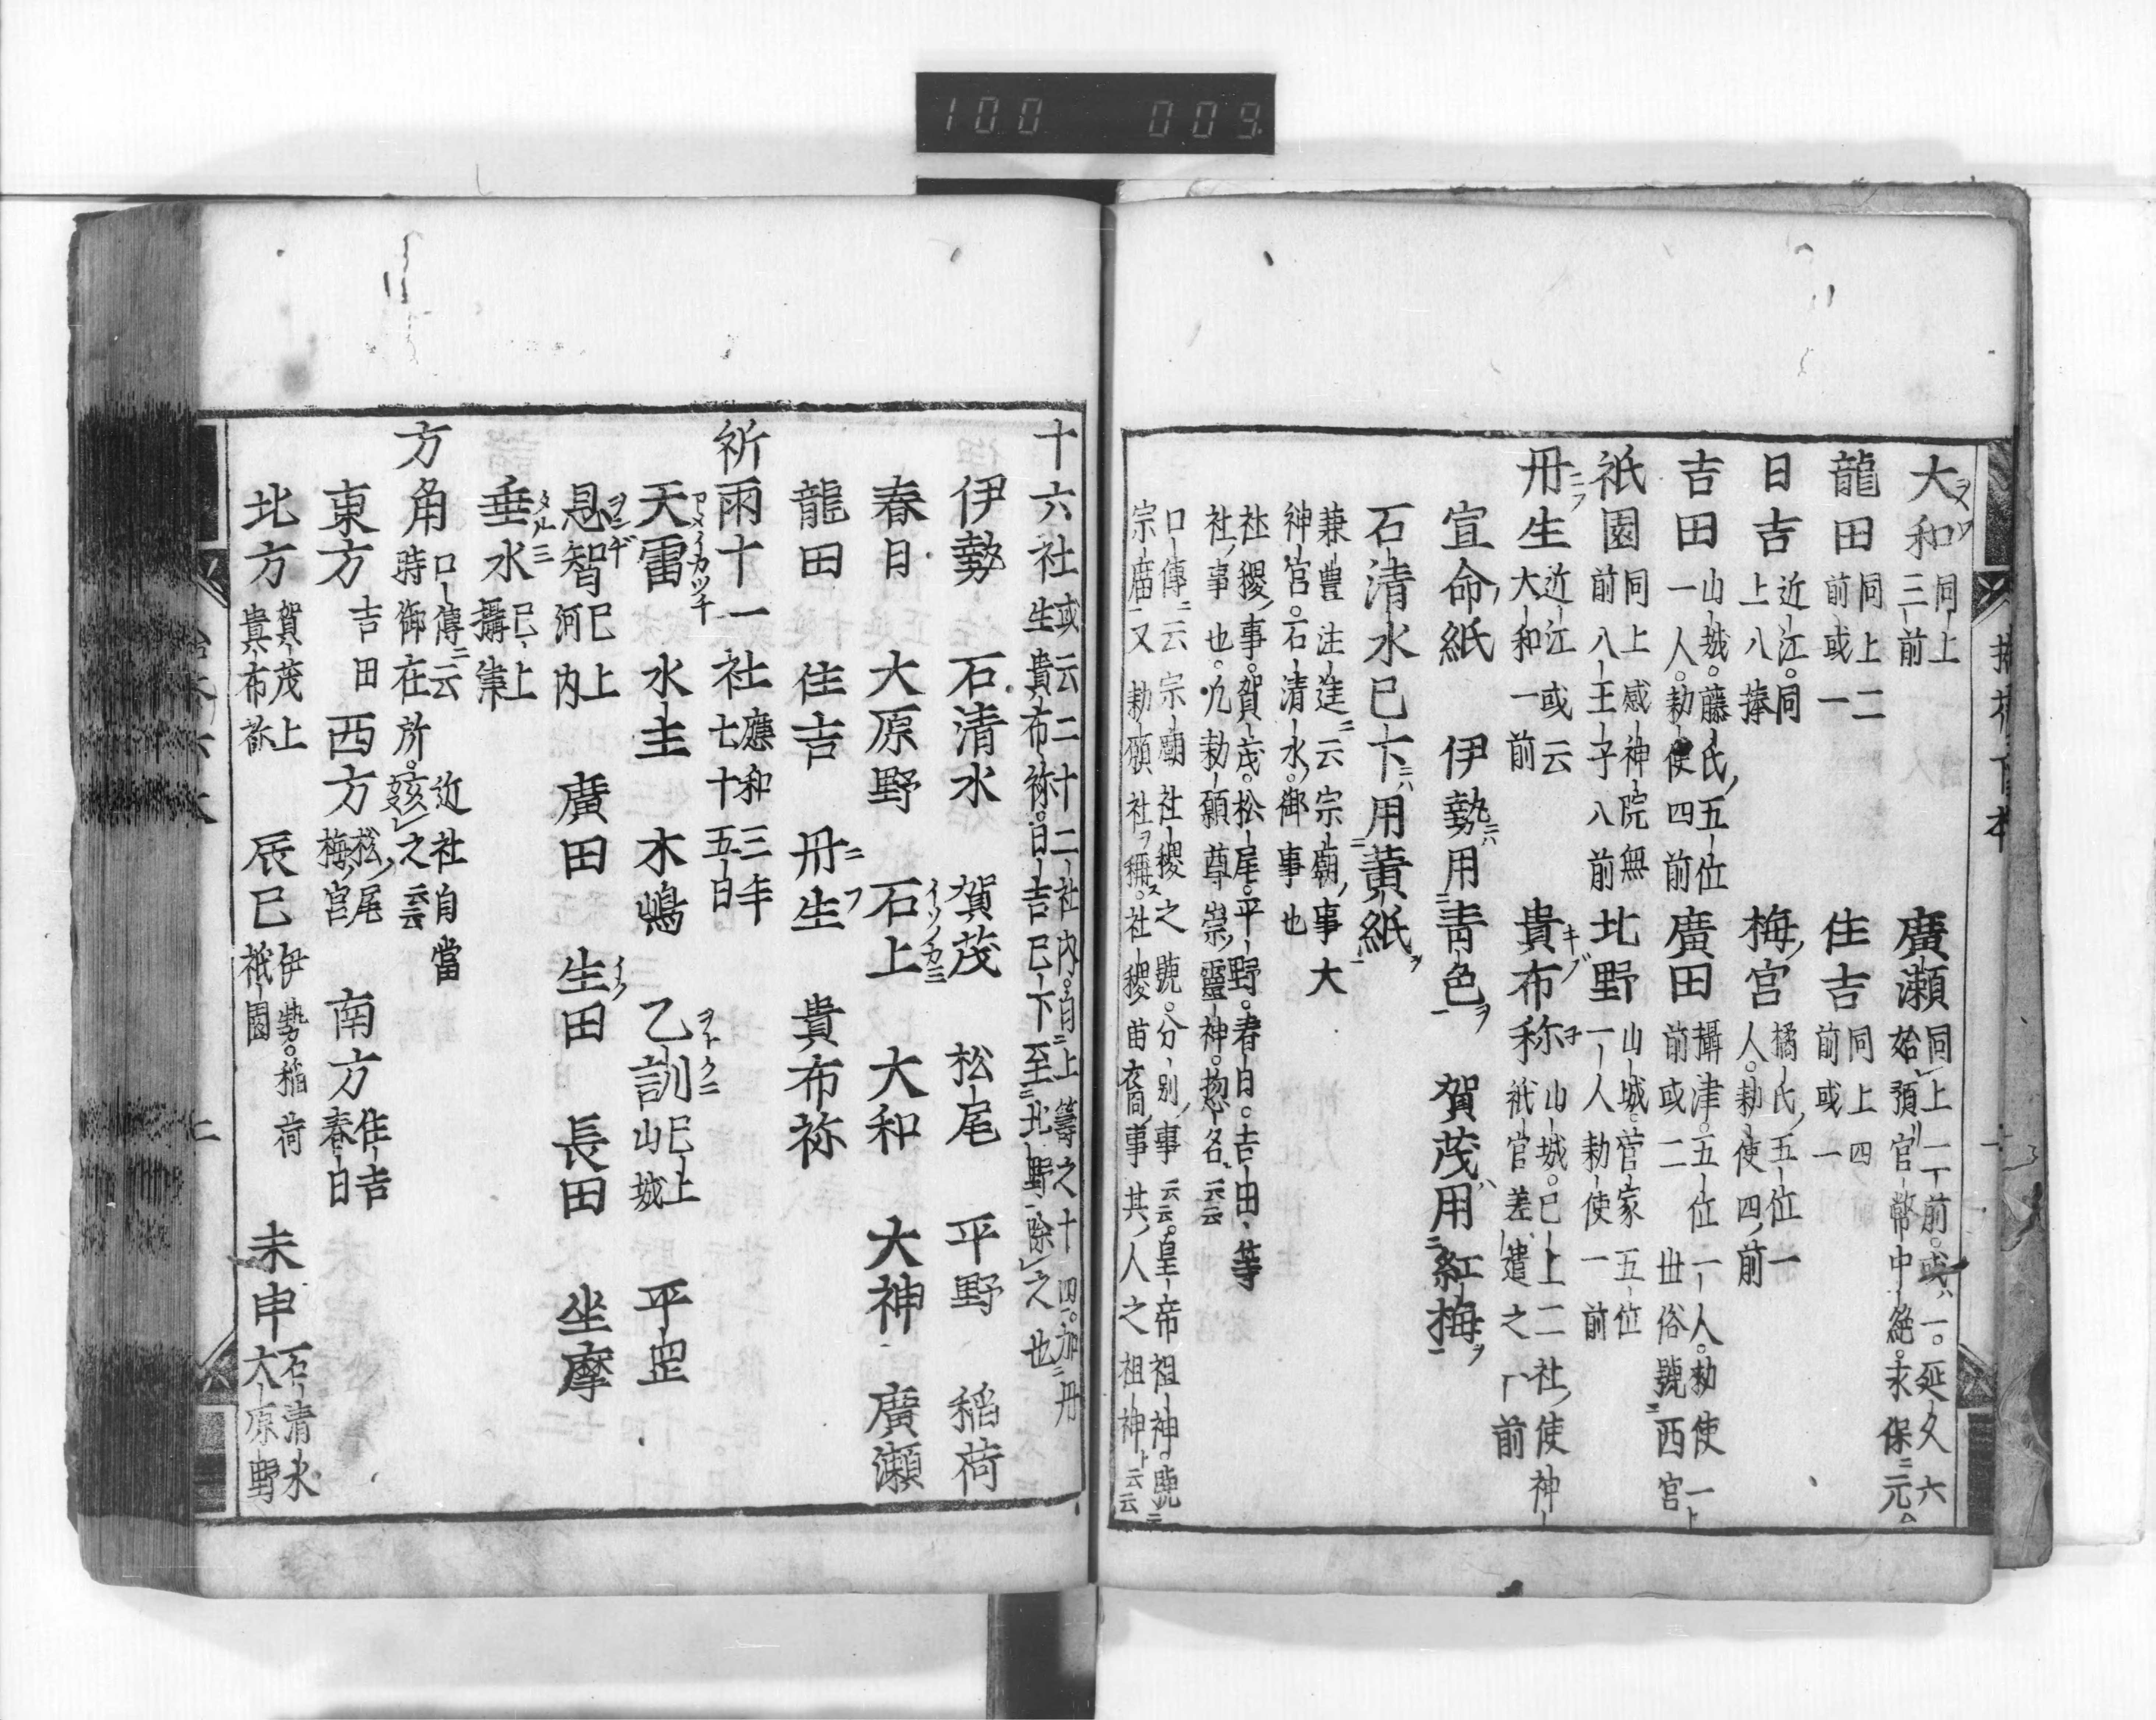 100 009
大和 同上三前 廣瀬 同上一前或一延久六始預官幣中絶永保元
龍田 同上二前或一 住吉 同上四前或一
日吉 近江同上八捧 梅宮 橘氏五位一人勅使四前
吉田 山城藤氏五位一人勅使四前 廣田 攝津五位一人勅使一前或二世俗號西宮
祇園 同上感神院無前八王子八前 北野 山城菅家五位一人勅使一前
丹生 近江或云大和一前 貴布祢 山城已上二社使神祇官差遣之一前
宣命紙 伊勢用青色 賀茂用紅梅
石清水已下用黄紙
兼豊注進云宗廟事大神官石清水御事也
社稷事賀茂松尾平野春日吉田等社事也九勅願尊崇靈神惣名云云
口傳云宗廟社稷之號分別事云云皇帝祖神號宗廟又勅願社稱社稷苗裔事其人之祖神云云
十六社 或云二十二社内自上籌之十四加丹生貴布祢日吉已下至北野除之也
伊勢 石清水 賀茂 松尾 平野 稲荷
春日 大原野 石上 大和 大神 廣瀬
龍田 住吉 丹生 貴布祢
祈雨十一社 應和三年七十五日
天雷 水主 木嶋 乙訓 已上山城 平岡
恩智 已上河内 廣田 生田 長田 坐摩
垂水 已上攝津
方角 口傳云時御在所近社自當該之云云
東方 吉田 西方 松尾梅宮 南方 住吉春日
北方 賀茂上貴布祢 辰巳 伊勢稲荷祇園 未申 石清水大原野